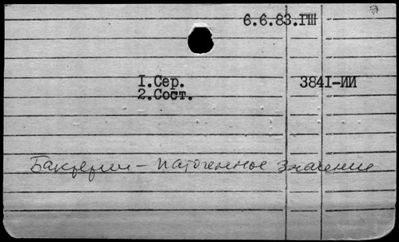 6.6.83.ГШ
1.Сер. 3841-ИИ
2.Сост.
Бактерии - патогенное значение